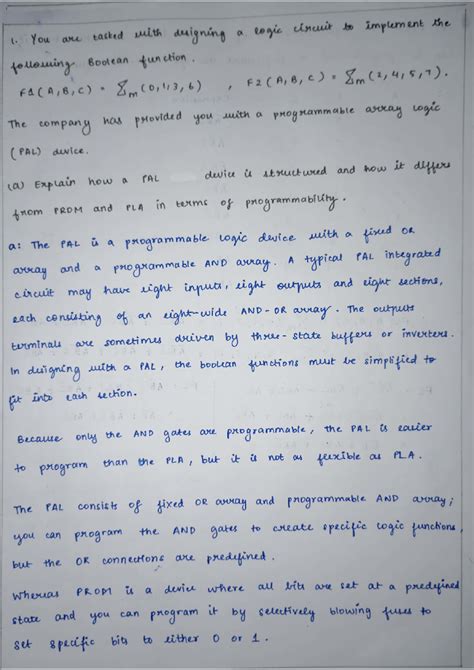 1. You are tasked with designing a logic circuit to implement the
following Boolean function.
F1(A,B,C) = Σm(0,1,3,6) , F2(A,B,C) = Σm(2,4,5,7).
The company has provided you with a programmable array logic
(PAL) device.
(a) Explain how a PAL device is structured and how it differs
from PROM and PLA in terms of programmability.
a: The PAL is a programmable logic device with a fixed OR
array and a programmable AND array. A typical PAL integrated
circuit may have eight inputs, eight outputs and eight sections,
each consisting of an eight-wide AND-OR array. The outputs
terminals are sometimes driven by three-state buffers or inverters.
In designing with a PAL, the boolean functions must be simplified to
fit into each section.
Because only the AND gates are programmable, the PAL is easier
to program than the PLA, but it is not as flexible as PLA.
The PAL consists of fixed OR array and programmable AND array;
you can program the AND gates to create specific logic functions,
but the OR connections are predefined.
Whereas PROM is a device where all bits are set at a predefined
state and you can program it by selectively blowing fuses to
set specific bits to either 0 or 1.